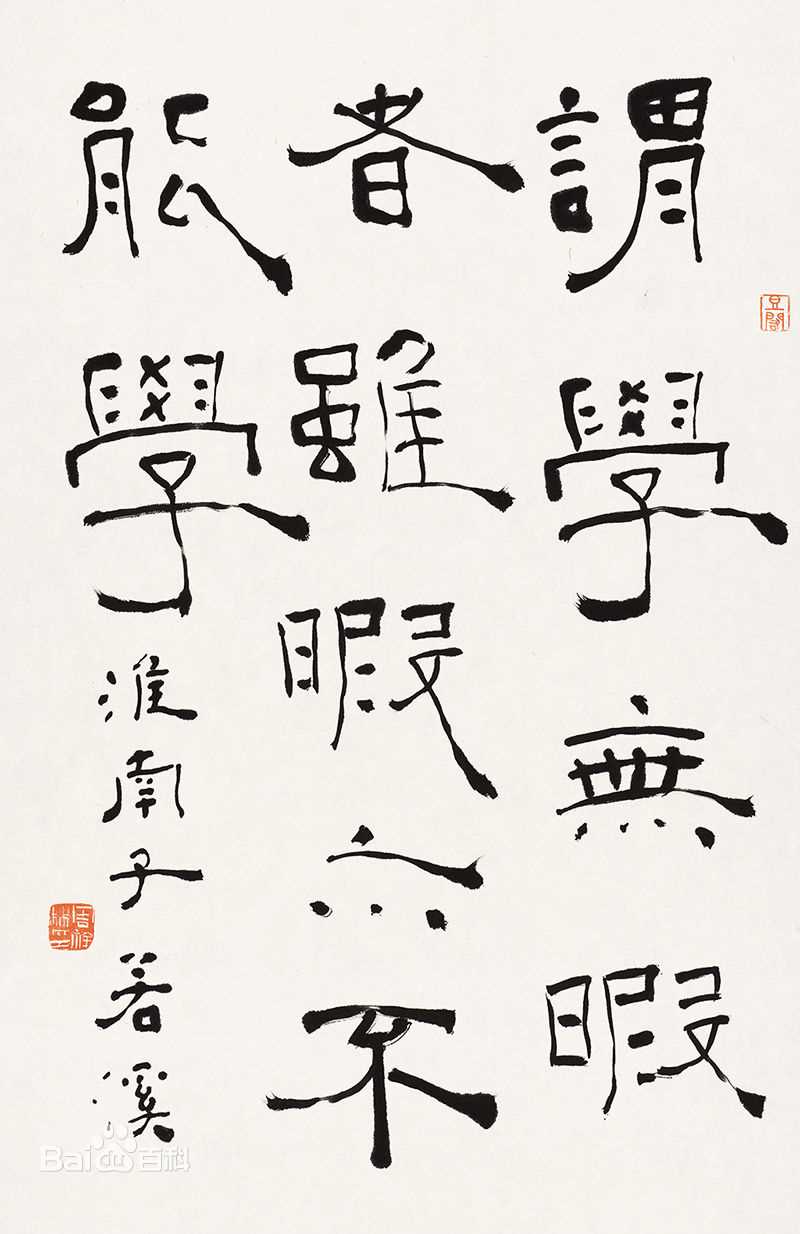 謂學無暇
者雖暇亦不
能學
淮南子若溪
Bai百科